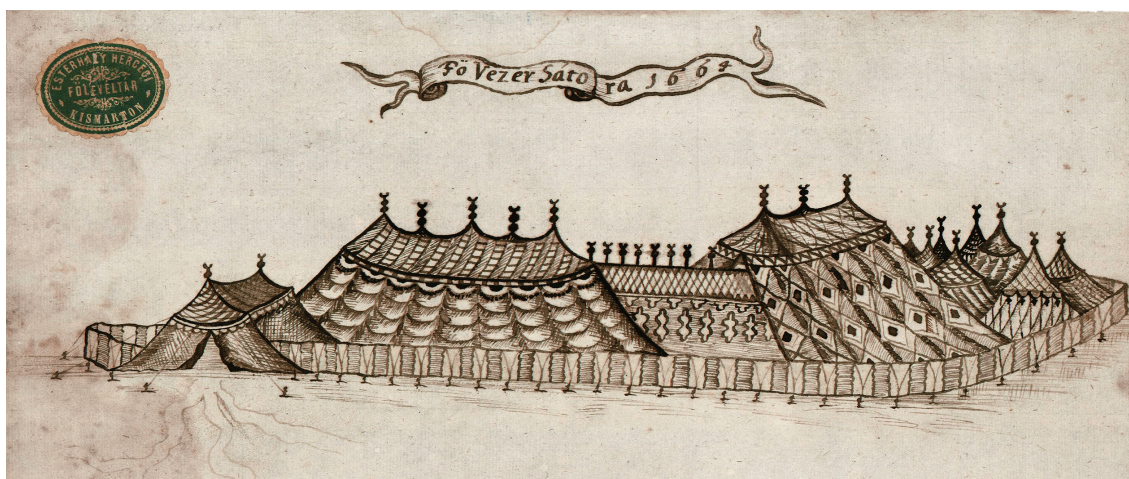 ESTERHÁZY HERCEGI
FŐLEVÉLTÁR
KISMARTON
Fö Vezer Sátora 1664